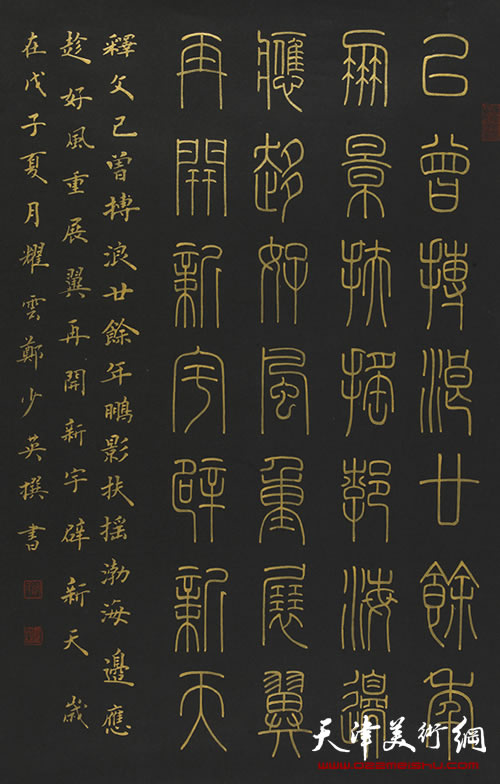 已曾搏浪廿餘年
鵬景扶搖郣海邊
應趁好風重展翼
再開新宇辟新天
釋文已曾搏浪廿餘年鵬影扶摇渤海邊應
趁好風重展翼再開新宇辟新天歲
在戊子夏月耀雲鄭少英撰書
天津美術網